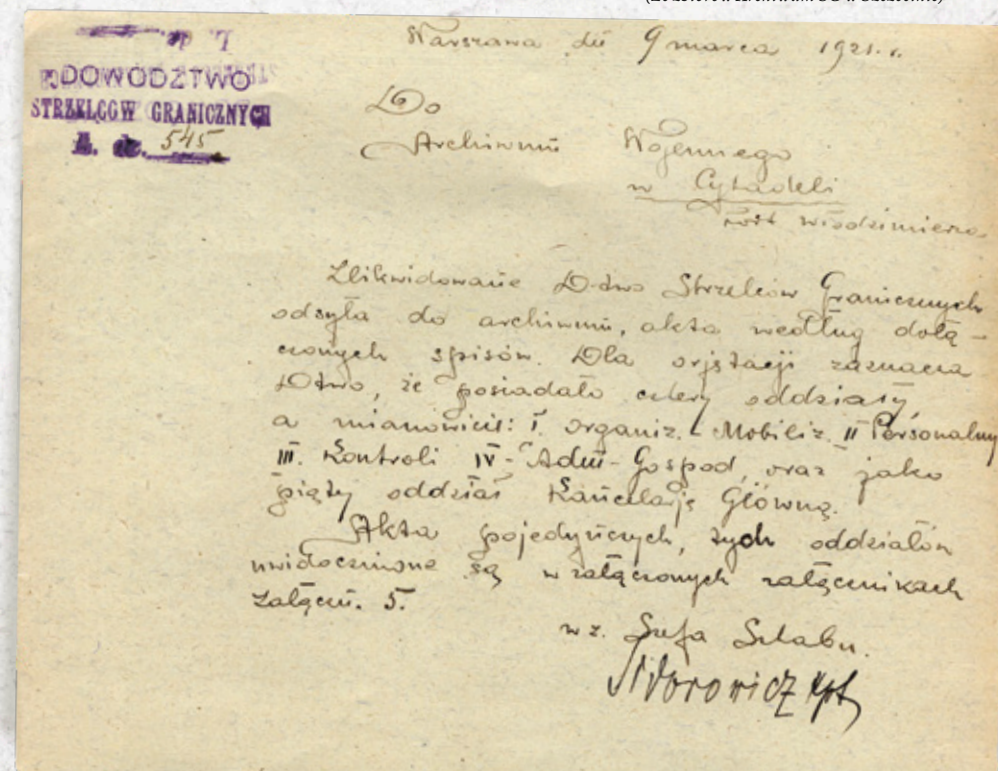 Warszawa dn 9 marca 1921. r.
L. dz
DOWÓDZTWO
STRZELCÓW GRANICZNYCH
L. dz. 545
Do
Archiwum Wojennego
w Cytadeli
fort Włodzimierza
Zlikwidowanie D-two Strzelców Granicznych
odsyła do archiwum, akta według dołą-
czonych spisów. Dla orjetacji zaznacza
Dtwo, że posiadało cztery oddziały,
a mianowicie: I. organiz. - Mobiliz. II Personalny
III. Kontroli IV - Adm - Gospod, oraz jako
piąty oddział Kancelarję Główną.
Akta pojedyńczych, tych oddziałów
uwidocznione są w załączonych załącznikach
Załączn. 5.
wz. Szefa Sztabu.
Sidorowicz kpt